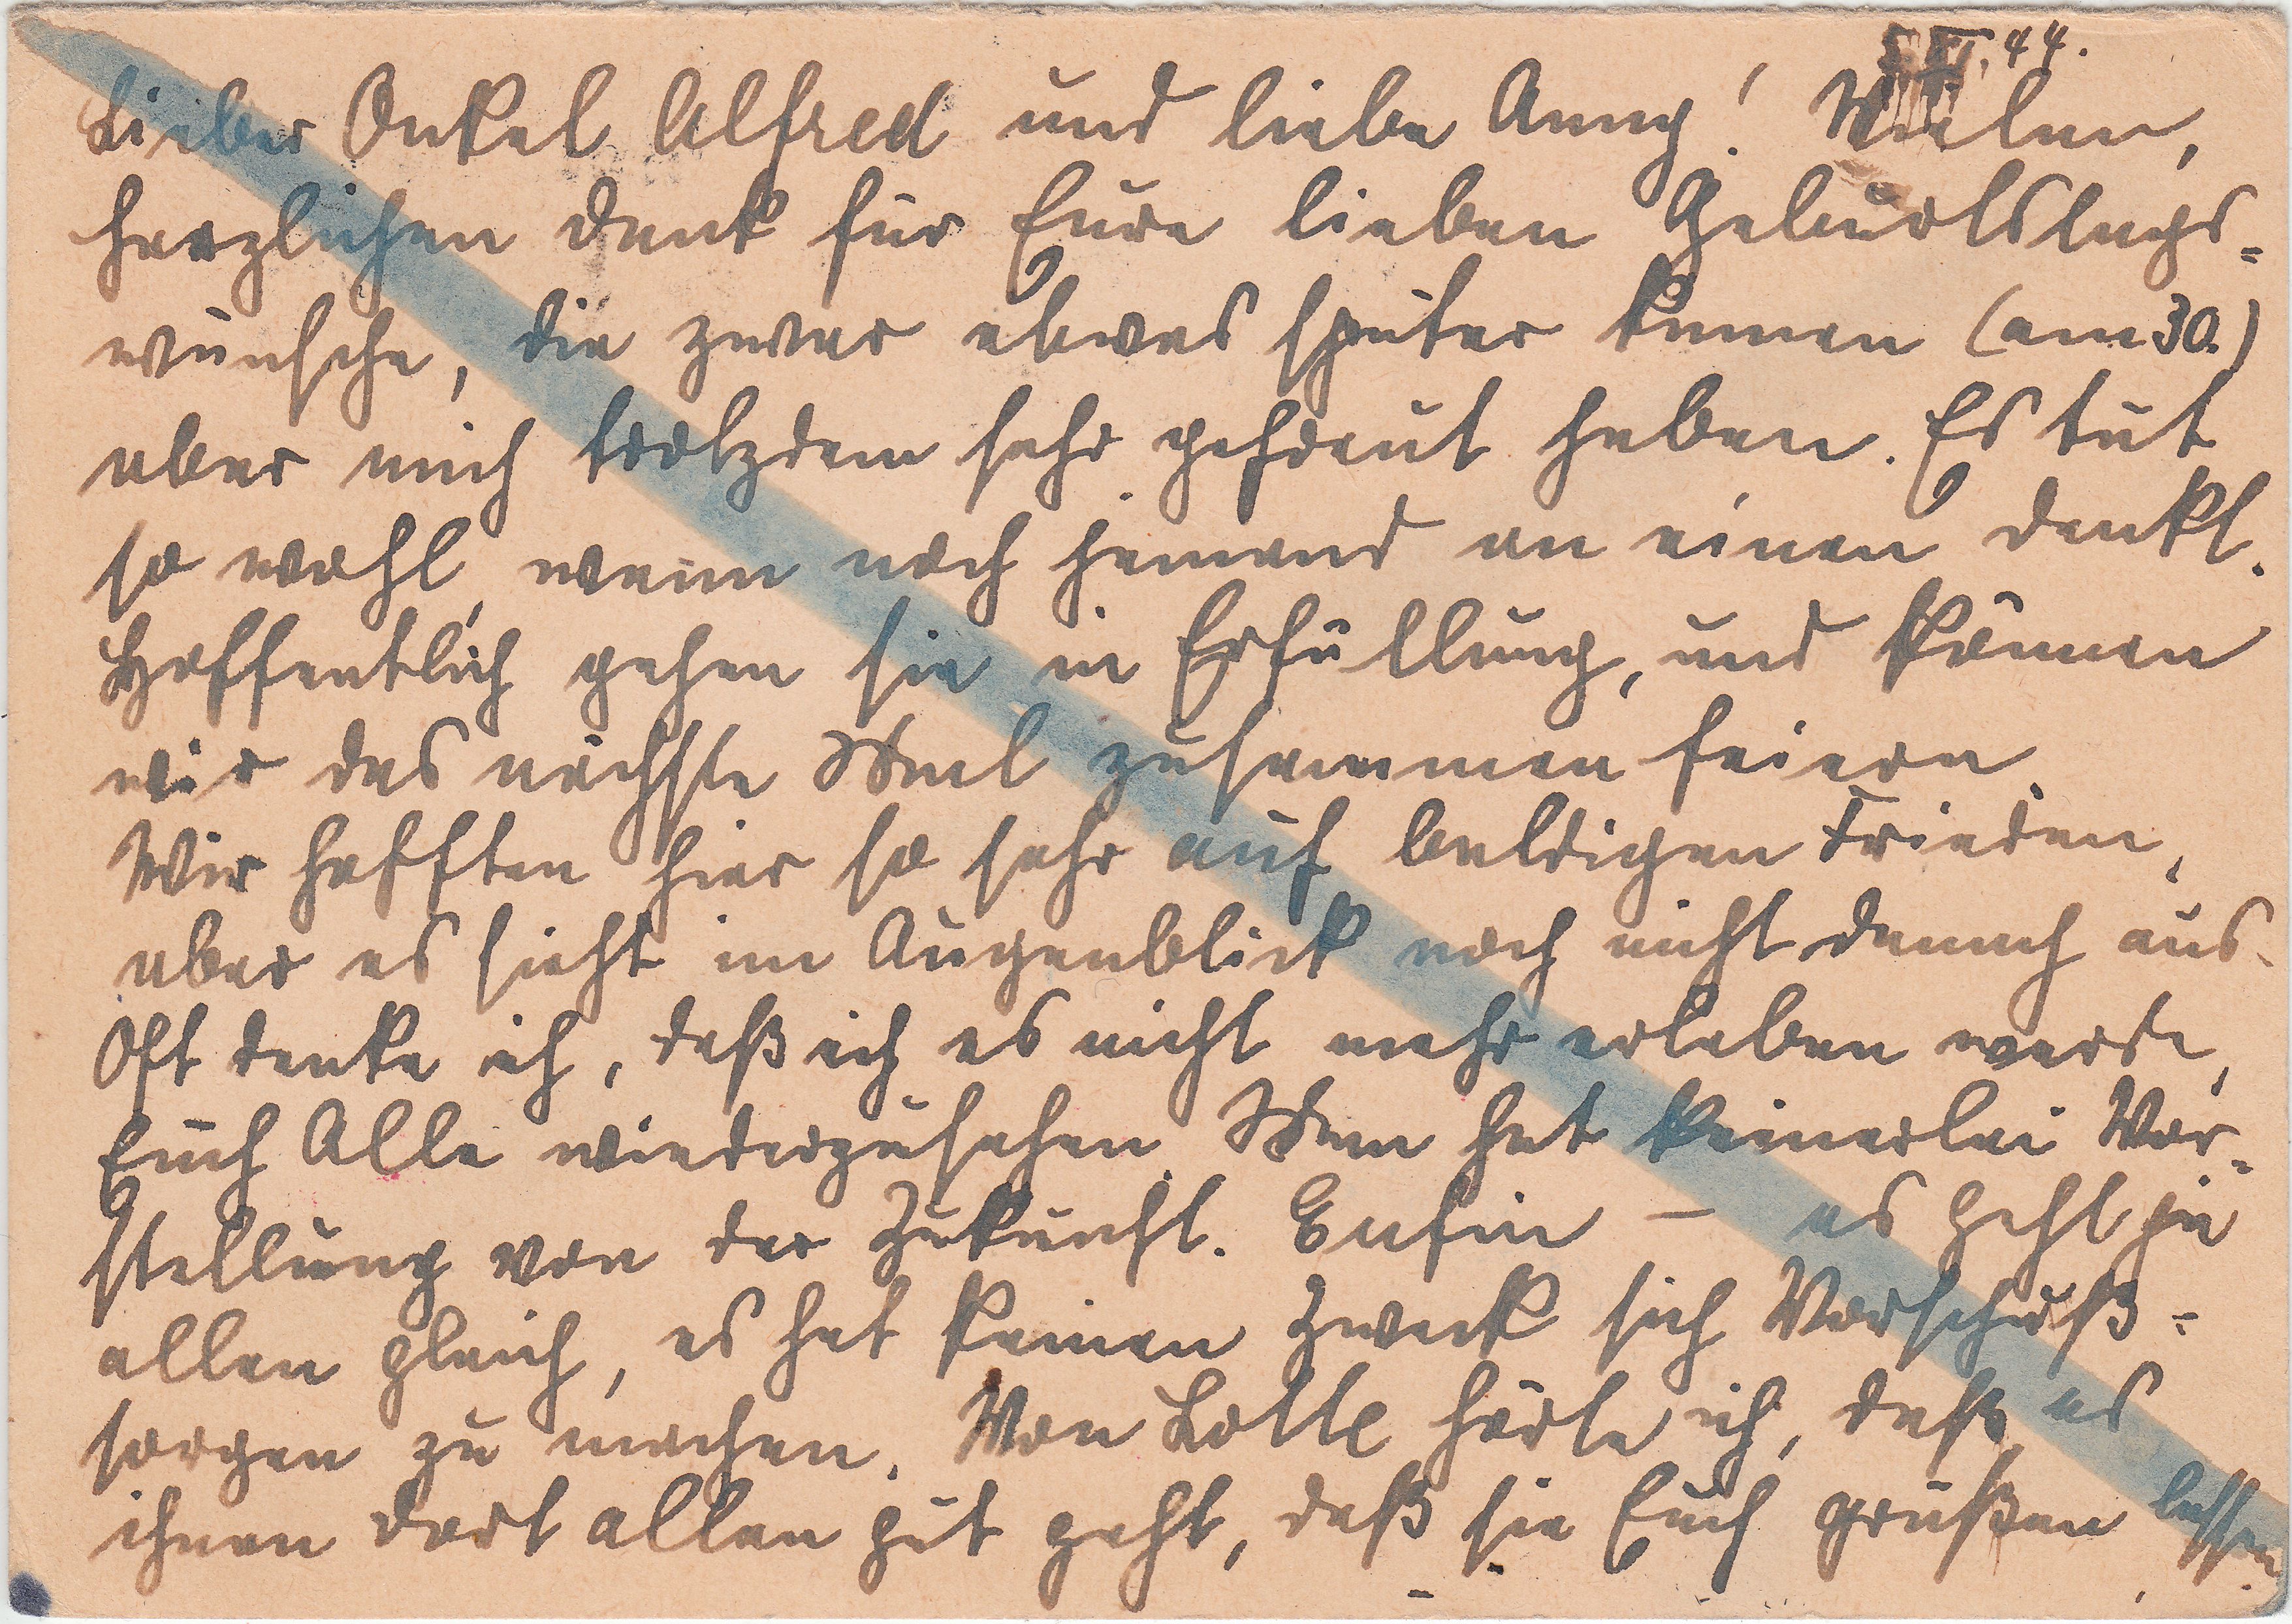 5. XI. 44.
Lieber Onkel Alfred und liebe Anny! Vielen,
herzlichen Dank für Eure lieben Geburtstags-
wünsche, die zwar etwas später kamen (am 30.)
aber mich trotzdem sehr gefreut haben. Es tut
so wohl, wenn noch jemand an einen denkt.
Hoffentlich gehen sie in Erfüllung, und können
wir das nächste Mal zusammen feiern.
Wir hofften hier so sehr auf baldigen Frieden,
aber es sieht im Augenblick noch nicht danach aus.
Oft denke ich, daß ich es nicht mehr erleben werde,
Euch Alle wiederzusehen. Man hat keinerlei Vor-
stellung von der Zukunft. Enfin – es geht ja
allen gleich, es hat keinen Zweck sich Vorschuß-
sorgen zu machen. Von Lotte hörte ich, daß es
ihnen dort allen gut geht, daß sie Euch grüßen lassen.